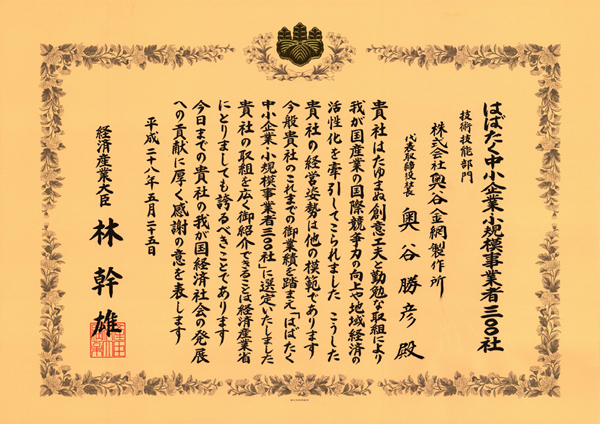 はばたく中小企業・小規模事業者三〇〇社
技術技能部門
株式会社奥谷金網製作所
代表取締役社長 奥谷勝彦 殿
貴社はたゆまぬ創意工夫と勤勉な取組により
我が国産業の国際競争力の向上や地域経済の
活性化を牽引してこられました こうした
貴社の経営姿勢は他の模範であります
今般貴社のこれまでの御業績を踏まえ「はばたく
中小企業・小規模事業者三〇〇社」に選定いたしました
貴社の取組を広く御紹介できることは経済産業省
にとりましても誇るべきことであります
今日までの貴社の我が国経済社会の発展
への貢献に厚く感謝の意を表します
平成二十八年五月二十五日
経済産業大臣 林幹雄